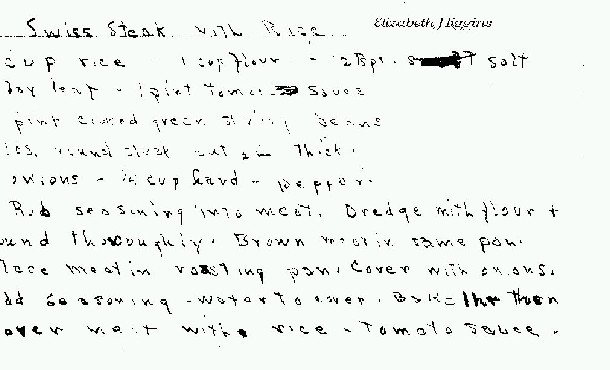 Swiss Steak with Rice Elizabeth J Higgins
cup rice 1 cup flour - 2 tsps. salt
bay leaf - 1 pint tomato sauce
pint canned green string beans
lbs. round steak cut 2 in thick.
onions - ¼ cup lard - pepper.
Rub seasoning into meat. Dredge with flour +
ound thoroughly. Brown meat in same pan.
lace meat in roasting pan. Cover with onions.
dd seasoning - water to cover. Bake 1 hr then
over meat with rice - tomato sauce.